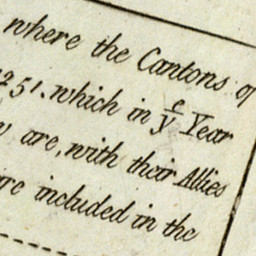 where the Cantons of
1251. which in yᵉ Year
are, with their Allies
are included in the